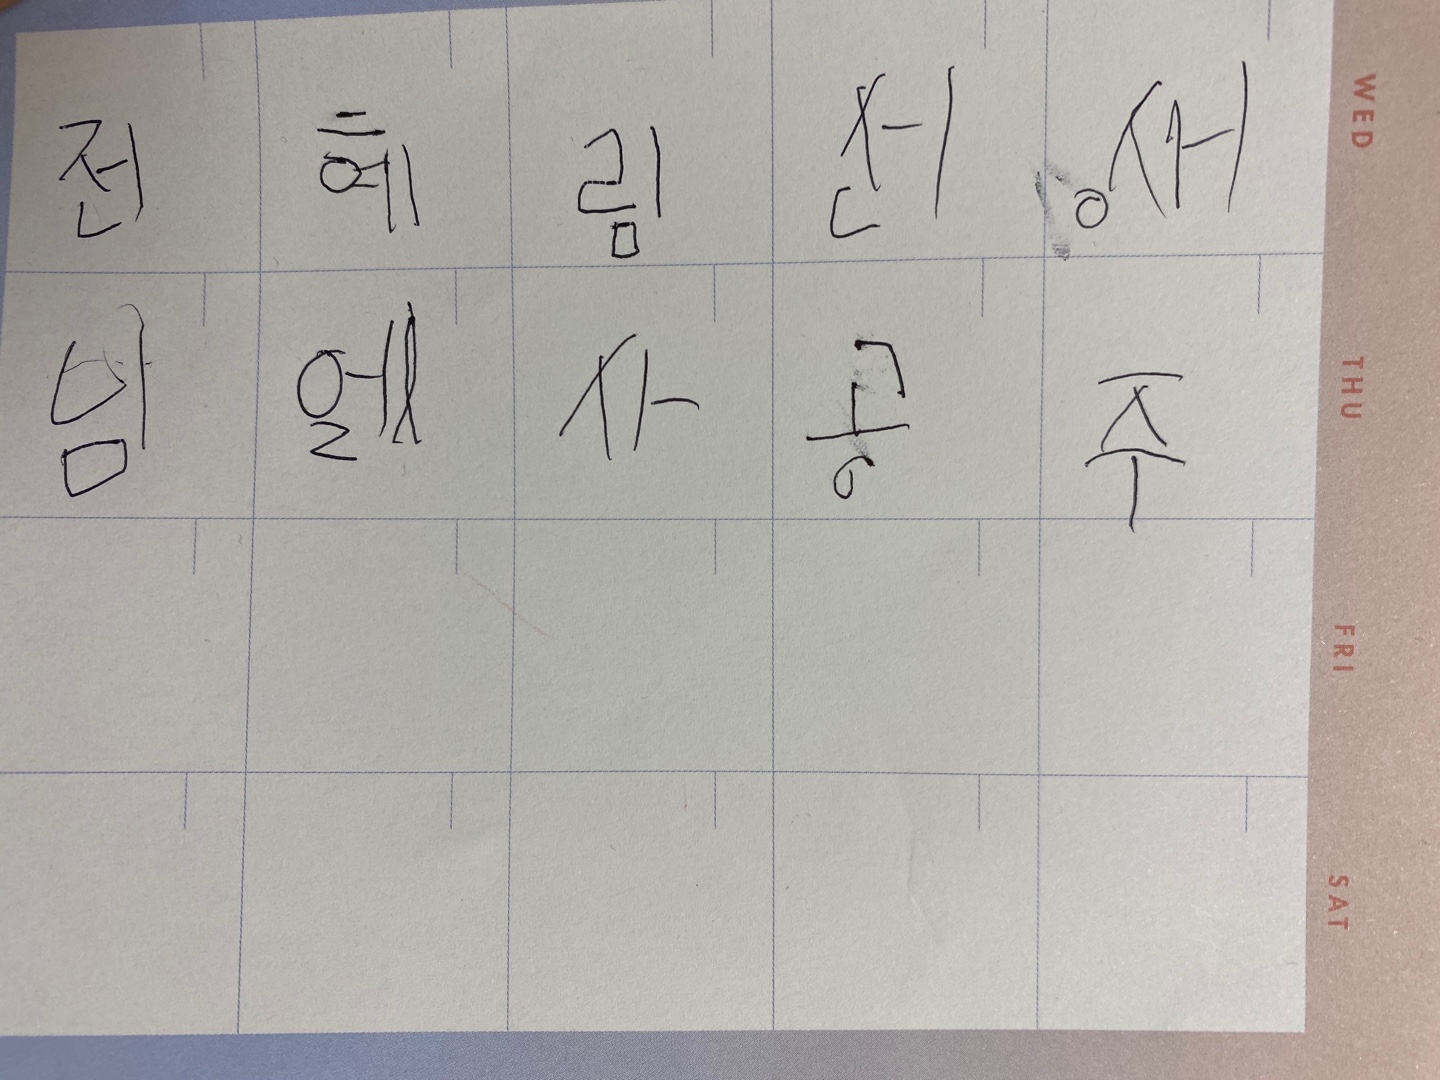 전혜림선생
님엘사공주
WED
THU
FRI
SAT